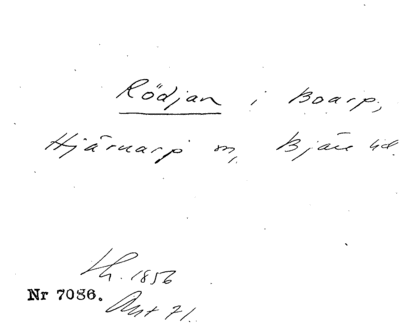 Rödjan i Boarp,
Hjärnarp sn, Bjäre hd.
Lh. 1856
Nr 7086. Avst 71.